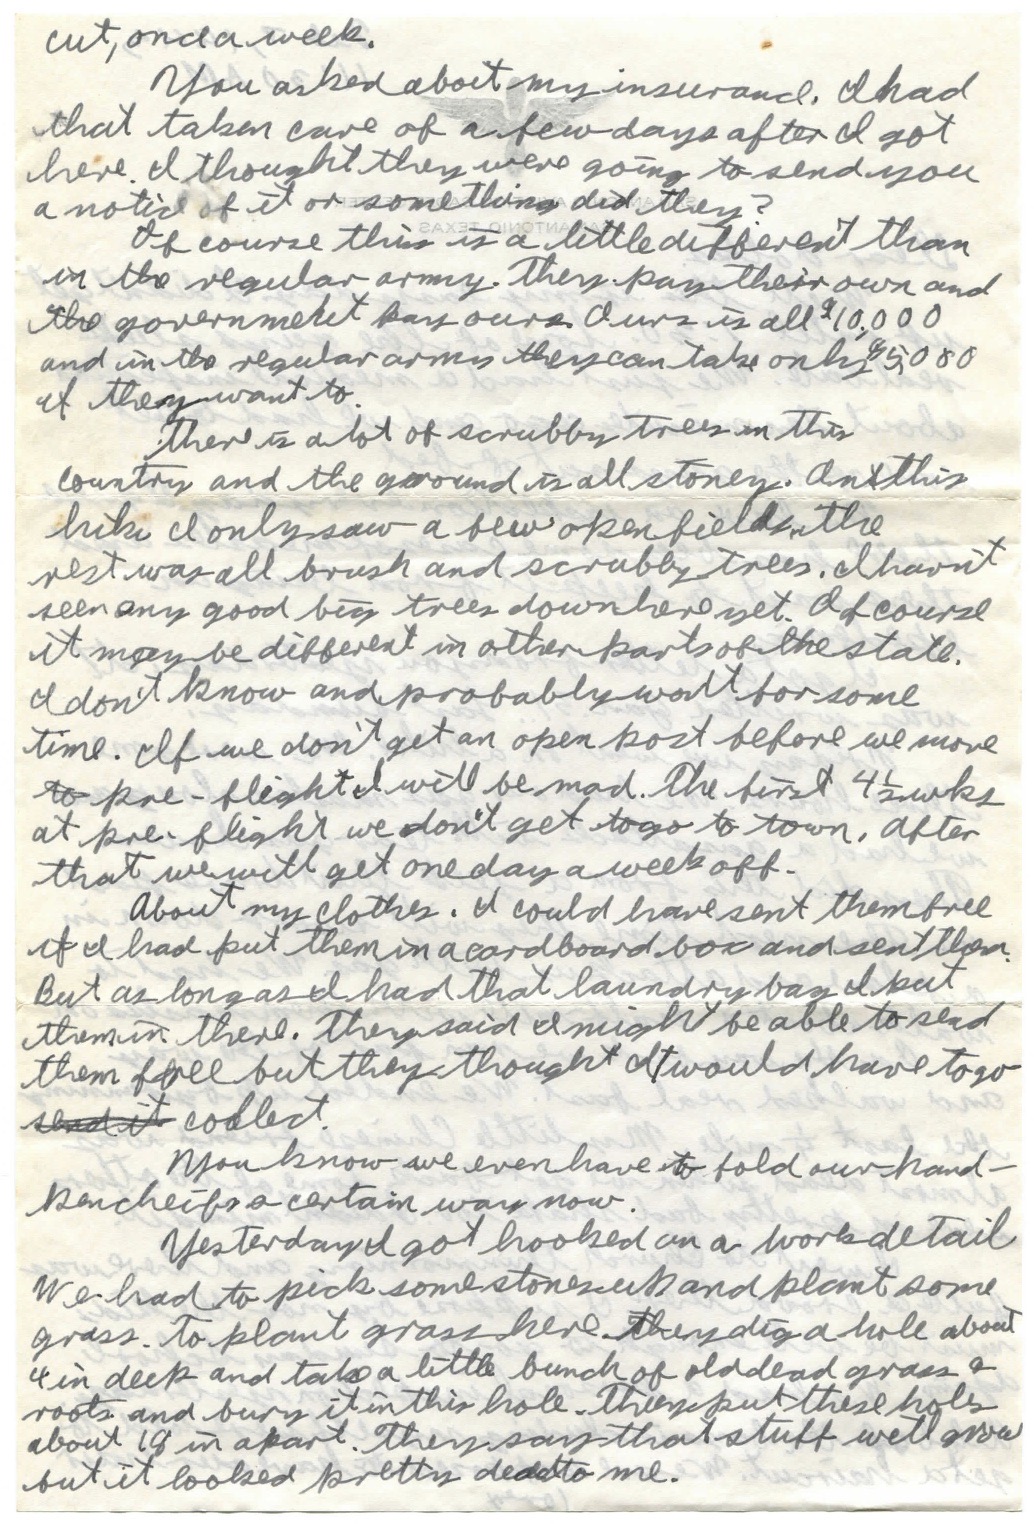 cut, once a week.
You asked about my insurance. I had
that taken care of a few days after I got
here. I thought they were going to send you
a notice of it or something did they?
Of course this is a little different than
in the regular army. They pay their own and
the government pay ours. Ours is all $10,000
and in the regular army they can take only $5,000
if they want to.
There is a lot of scrubby trees in this
country and the ground is all stoney. On this
hike I only saw a few open fields, the
rest was all brush and scrubby trees. I havn't
seen any good big trees down here yet. Of course
it may be different in other parts of the state.
I don't know and probably won't for some
time. If we don't get an open post before we move
to pre-flight I will be mad. The first 4½ wks
at pre-flight we don't get to go to town. After
that we will get one day a week off.
About my clothes. I could have sent them free
if I had put them in a cardboard box and sent them.
But as long as I had that laundry bag I put
them in there. They said I might be able to send
them free but they thought it would have to go
send it collect.
You know we even have to fold our hand-
kercheifs a certain way now.
Yesterday I got hooked on a work detail
We had to pick some stones up and plant some
grass. To plant grass here they dig a hole about
4 in deep and take a little bunch of old dead grass &
roots and bury it in this hole. They put these holes
about 18 in apart. They say that stuff will grow
but it looked pretty dead to me.